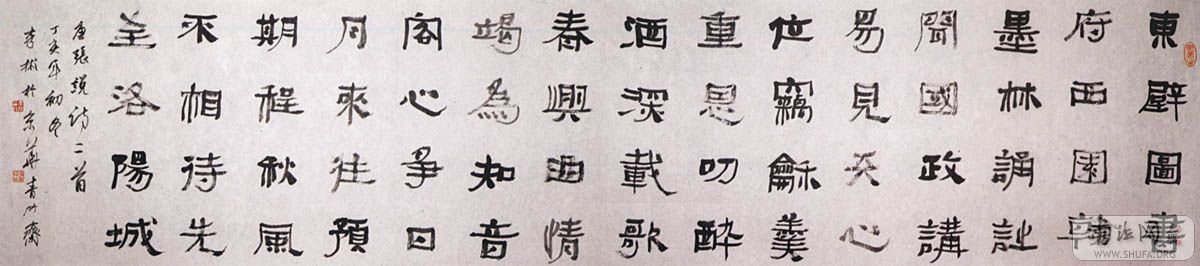 東壁圖書
府西園翰
墨林誦詩
聞國政講
易見天心
位竊龢羹
重恩叨醉
酒深載歌
春興曲情
竭為知音
客心爭日
月來往預
期程秋風
不相待先
至洛陽城
唐張説詩二首
丁亥年初冬
李於京華青竹齋
书法网
WWW.SHUFA.ORG